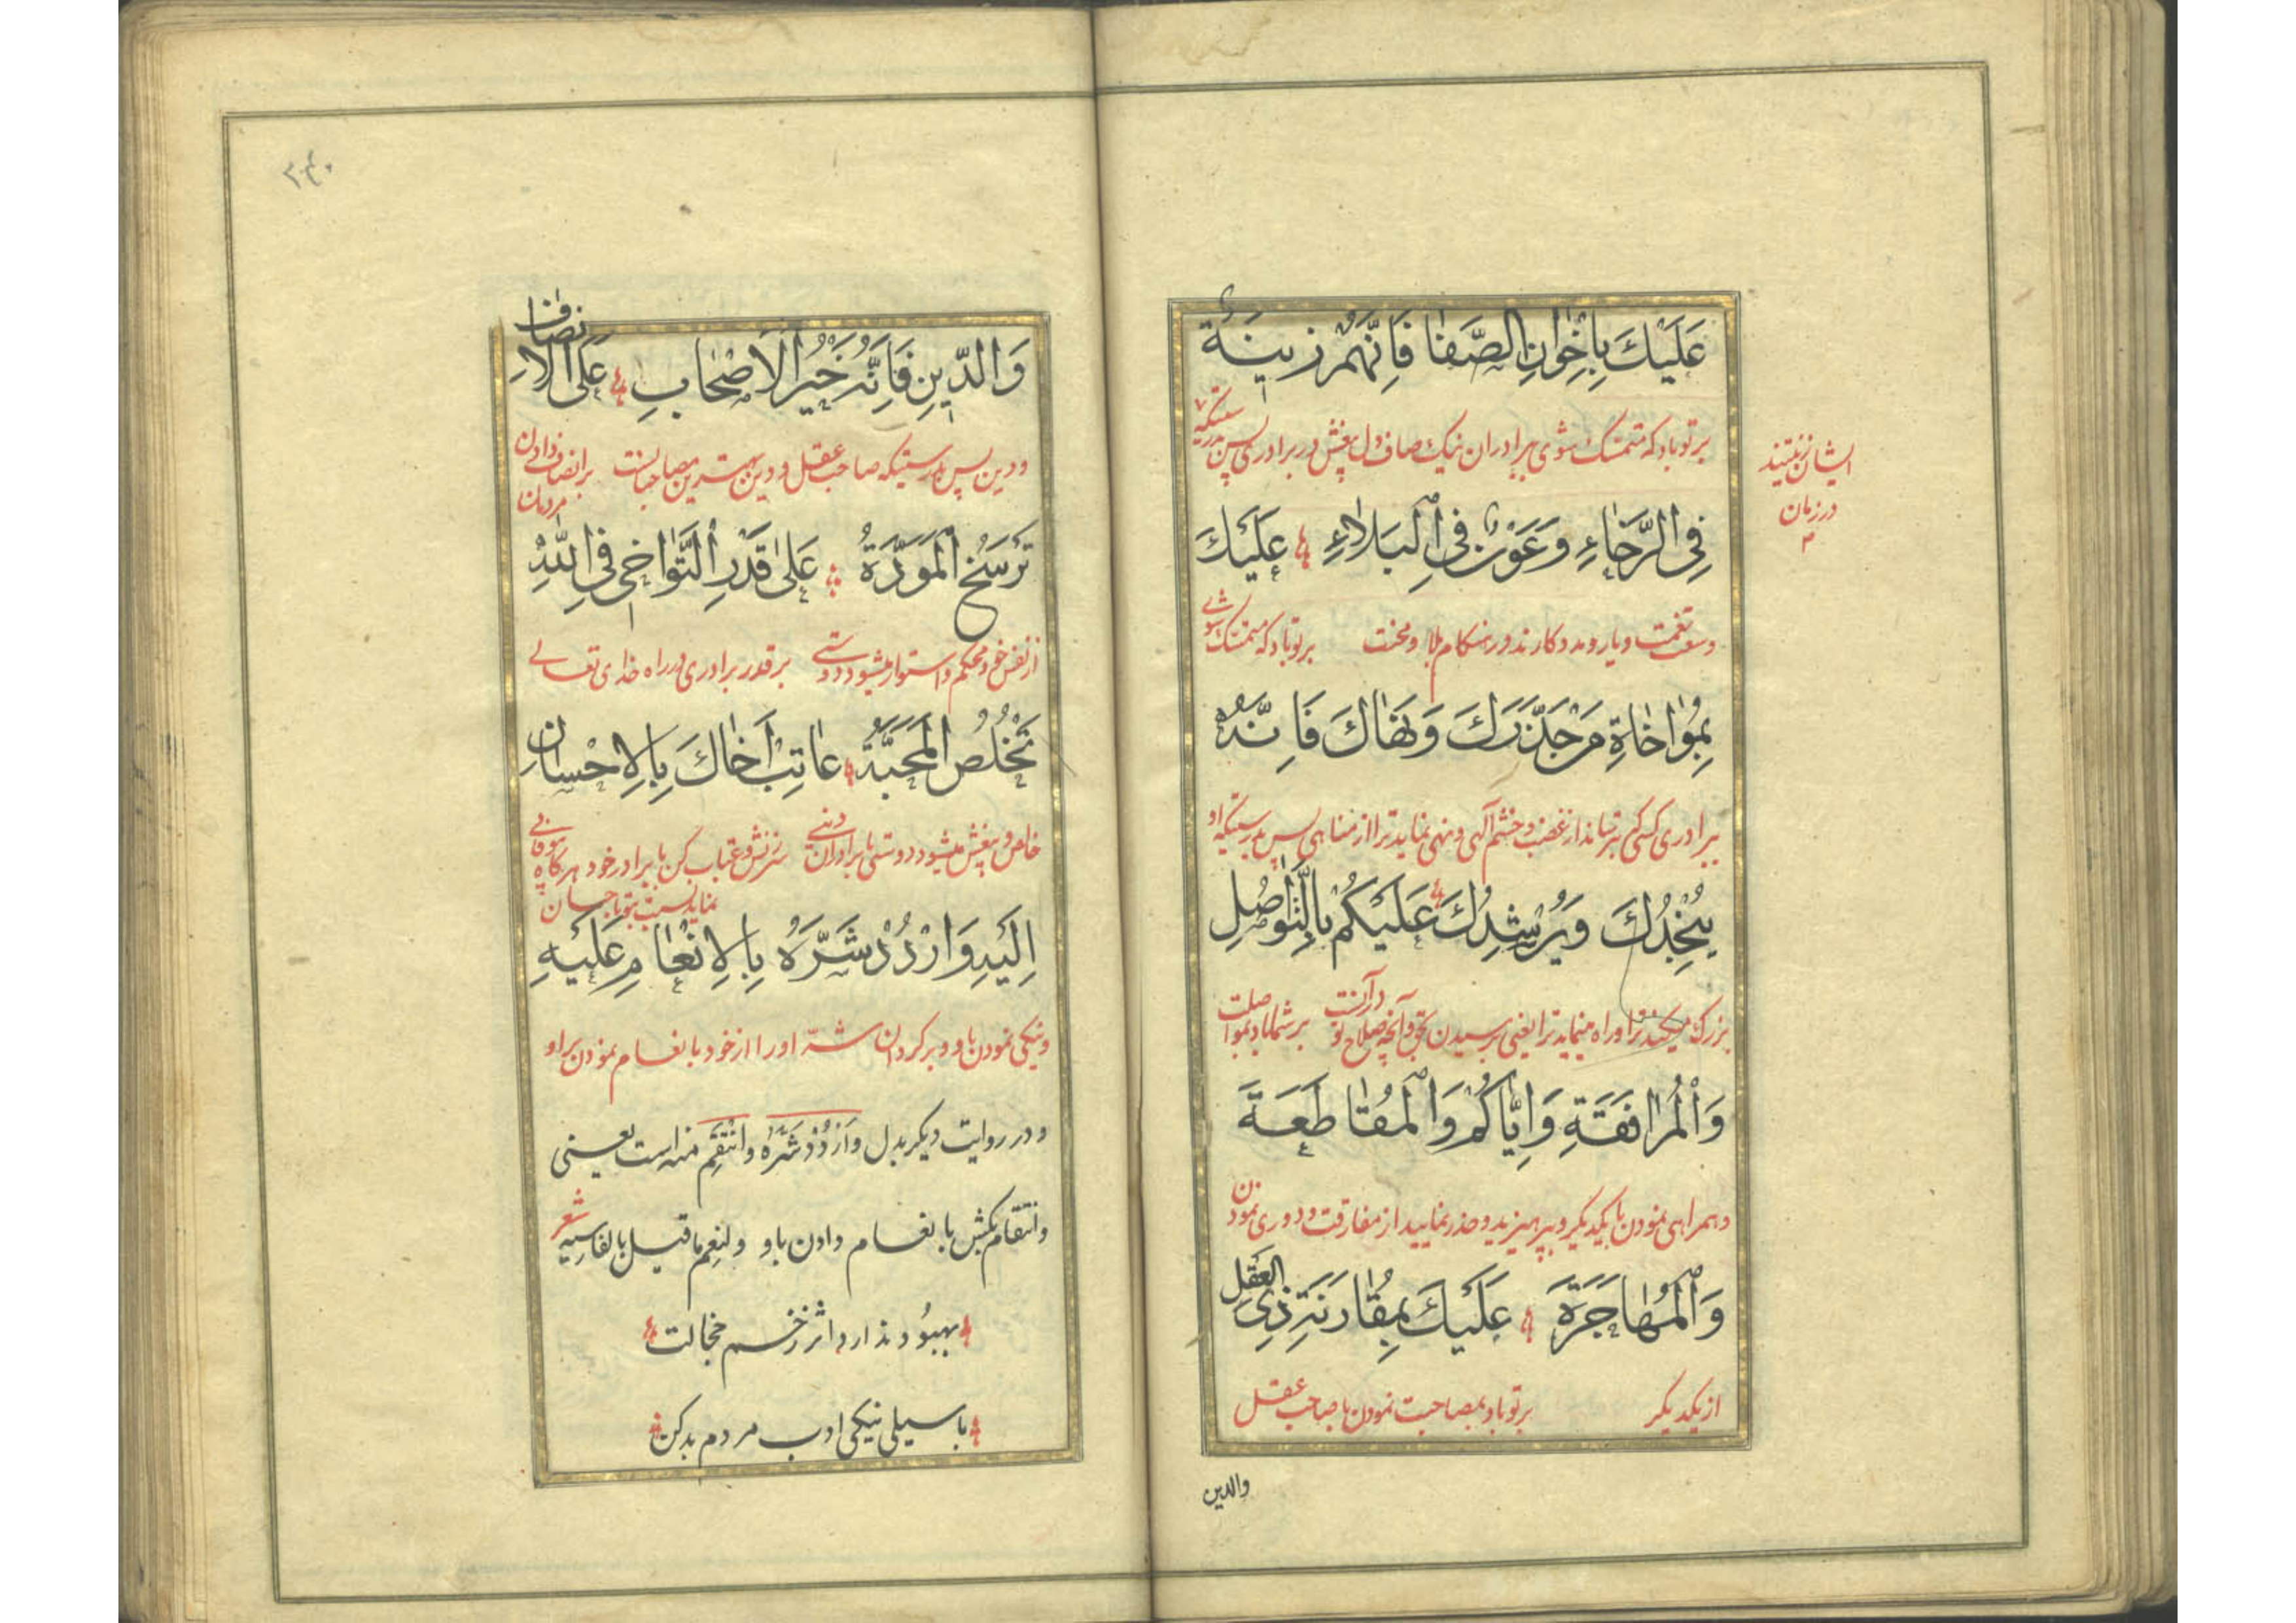 عَلَيْكَ بِاِخْوانِ الصَّفا فَاِنَّهُمْ زينَةٌ
بر تو باد که متمسک شوی ببرادران نیک صاف دل بیغش در برادری پس بدرستیکه
ایشان زینتند
در زمان
فِي الرَّخاءِ وَعَوْنٌ فِي الْبَلاءِ عَلَيْكَ
وسعت نعمت و یار و مددکارند در هنکام بلا و محنت بر تو باد که متمسک شوی
بِمُواخاةِ مَنْ حَذَّرَكَ وَنَهاكَ فَاِنَّهُ
ببرادری کسی که بترساند از غضب و خشم آلهی و نهی نماید ترا از مناهی پس بدرستیکه او
يُنْجِدُكَ وَيُرْشِدُكَ عَلَيْكُمْ بِالتَّواصُلِ
بزرک میکند ترا و راه مینماید ترا یعنی برسیدن بحق و آنچه صلاح تو در آنست بر شما باد بمواصلت
وَالْمُرافَقَةِ وَاِيّاكُمْ وَالْمُقاطَعَةَ
و همراهی نمودن با یکدیکر و بپرهیزید و حذر نمایید از مفارقت و دوری نمودن
وَالْمُهاجَرَةَ عَلَيْكَ بِمُقارَنَةِ ذِي الْعَقْلِ
از یکدیکر بر تو باد بمصاحبت نمودن با صاحب عقل
والدین
۲۴۰
وَالدّينِ فَاِنَّهُ خَيْرُ الْاَصْحابِ عَلَى الْاِنْصافِ
و دین پس بدرستیکه صاحب عقل و دین بهترین مصاحبانست بر انصاف دادن مردمان
تَرْسَخُ الْمَوَدَّةُ عَلى قَدْرِ التَّواخي فِي اللّٰهِ
از نفس خود محکم و استوار میشود دوستی بر قدر برادری در راه خدای تعالی
تَخْلُصُ الْمَحَبَّةُ عاتِبْ اَخاكَ بِالْاِحْسانِ
خالص و بیغش میشود دوستی با برادران دینی سرزنش و عتاب کن با برادر خود هرکاه بیوفایی
نماید نسبت بتو باحسان
اِلَيْهِ وَارْدُدْ شَرَّهُ بِالْاِنْعامِ عَلَيْهِ
و نیکی نمودن باو و برکردان شرّ او را از خود بانعام نمودن بر او
و در روایت دیکر بدل وَارْدُدْ شَرَّهُ وانْتَقِمْ منه است یعنی
وانتقام بکش بانعام دادن باو ولنعم ما قیل بالفارسیه شعر
بهبود ندارد اثر زخم خجالت
با سیلی نیکی ادب مردم بد کن